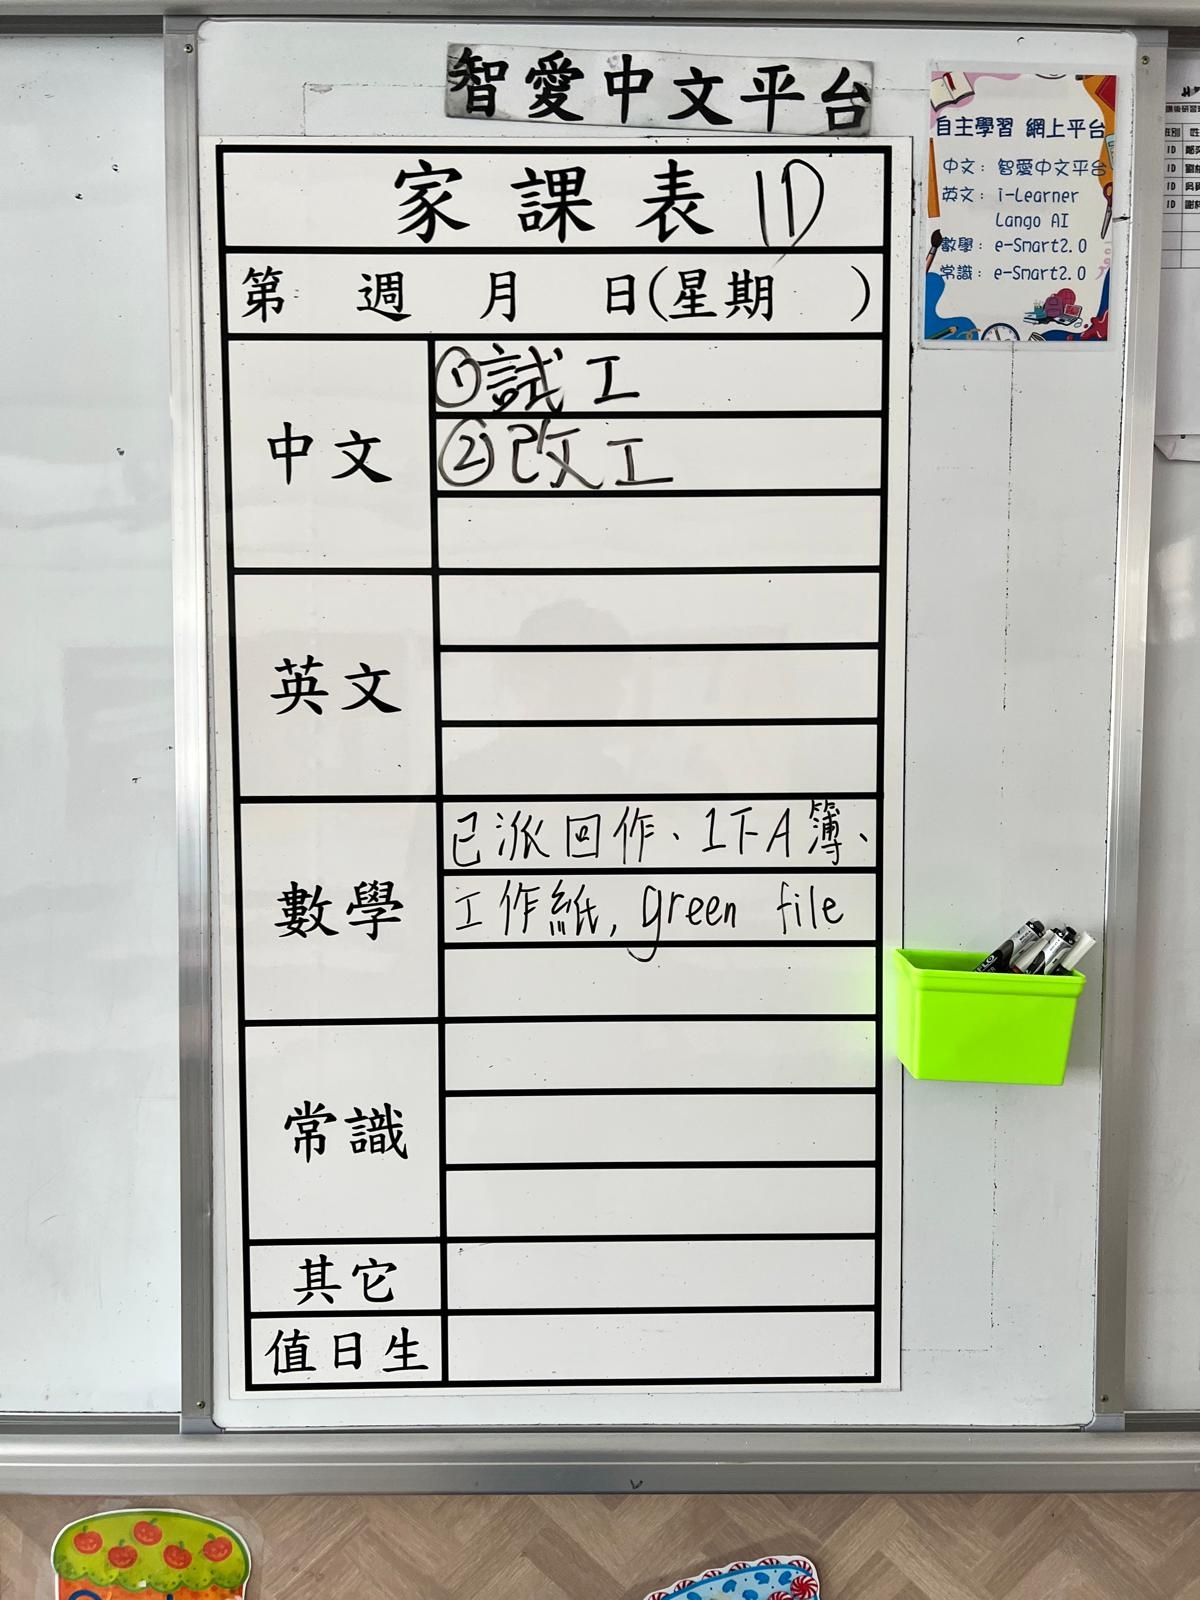 智愛中文平台
家課表 1D
第 週 月 日(星期 )
中文
①試工
②改工
英文
數學
已派回作、1下A簿、
工作紙, green file
常識
其它
值日生
自主學習 網上平台
中文：智愛中文平台
英文：i-Learner
Lango AI
數學：e-Smart2.0
常識：e-Smart2.0
1D
1D
1D
1D